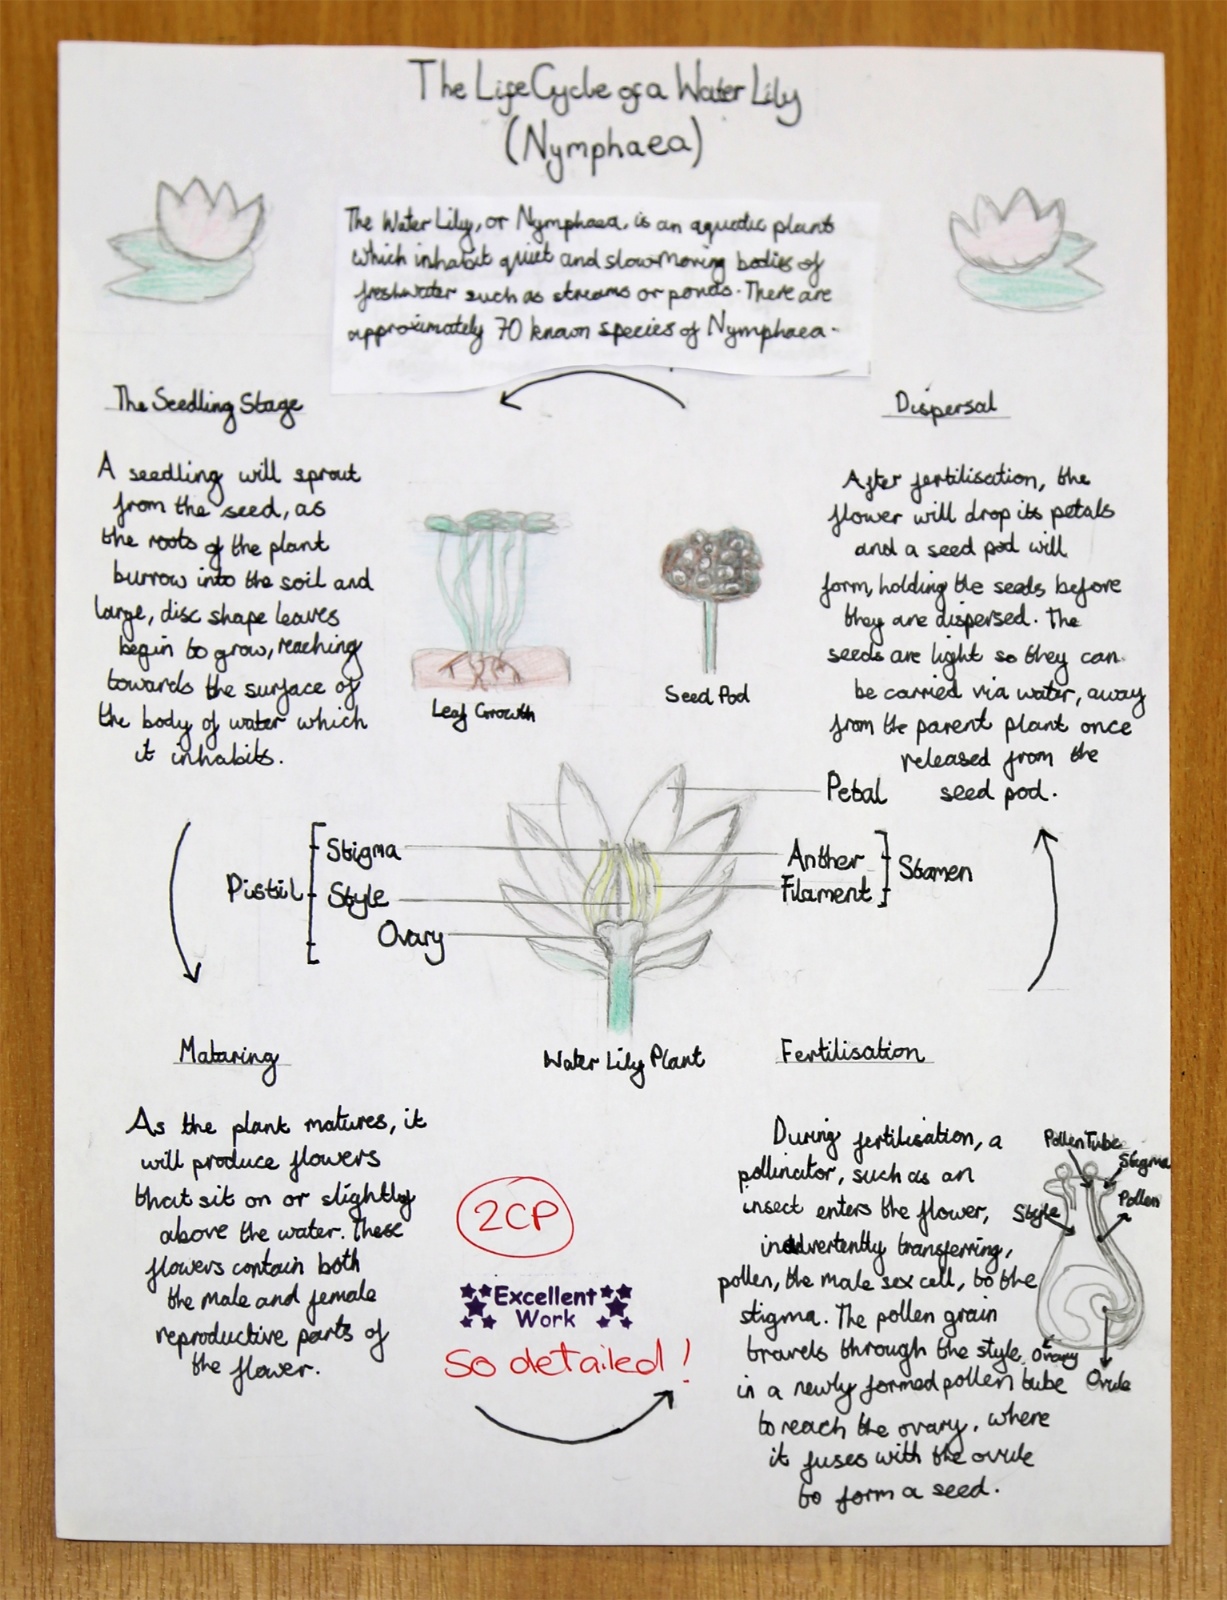 The Life Cycle of a Water Lily
(Nymphaea)
The Water Lily, or Nymphaea, is an aquatic plant
which inhabit quiet and slow-moving bodies of
freshwater such as streams or ponds. There are
approximately 70 known species of Nymphaea.
The Seedling Stage
A seedling will sprout
from the seed, as
the roots of the plant
burrow into the soil and
large, disc shape leaves
begin to grow, reaching
towards the surface of
the body of water which
it inhabits.
Leaf Growth
Seed Pod
Dispersal
After fertilisation, the
flower will drop its petals
and a seed pod will
form, holding the seeds before
they are dispersed. The
seeds are light so they can
be carried via water, away
from the parent plant once
released from the
seed pod.
Petal
Stigma
Pistil
Style
Ovary
Anther
Filament
Stamen
Water Lily Plant
Maturing
As the plant matures, it
will produce flowers
that sit on or slightly
above the water. These
flowers contain both
the male and female
reproductive parts of
the flower.
2CP
Excellent
Work
So detailed!
Fertilisation
During fertilisation, a
pollinator, such as an
insect enters the flower,
inadvertently transferring,
pollen, the male sex cell, to the
stigma. The pollen grain
travels through the style,
in a newly formed pollen tube
to reach the ovary, where
it fuses with the ovule
to form a seed.
Pollen Tube
Stigma
Pollen
Style
Ovary
Ovule